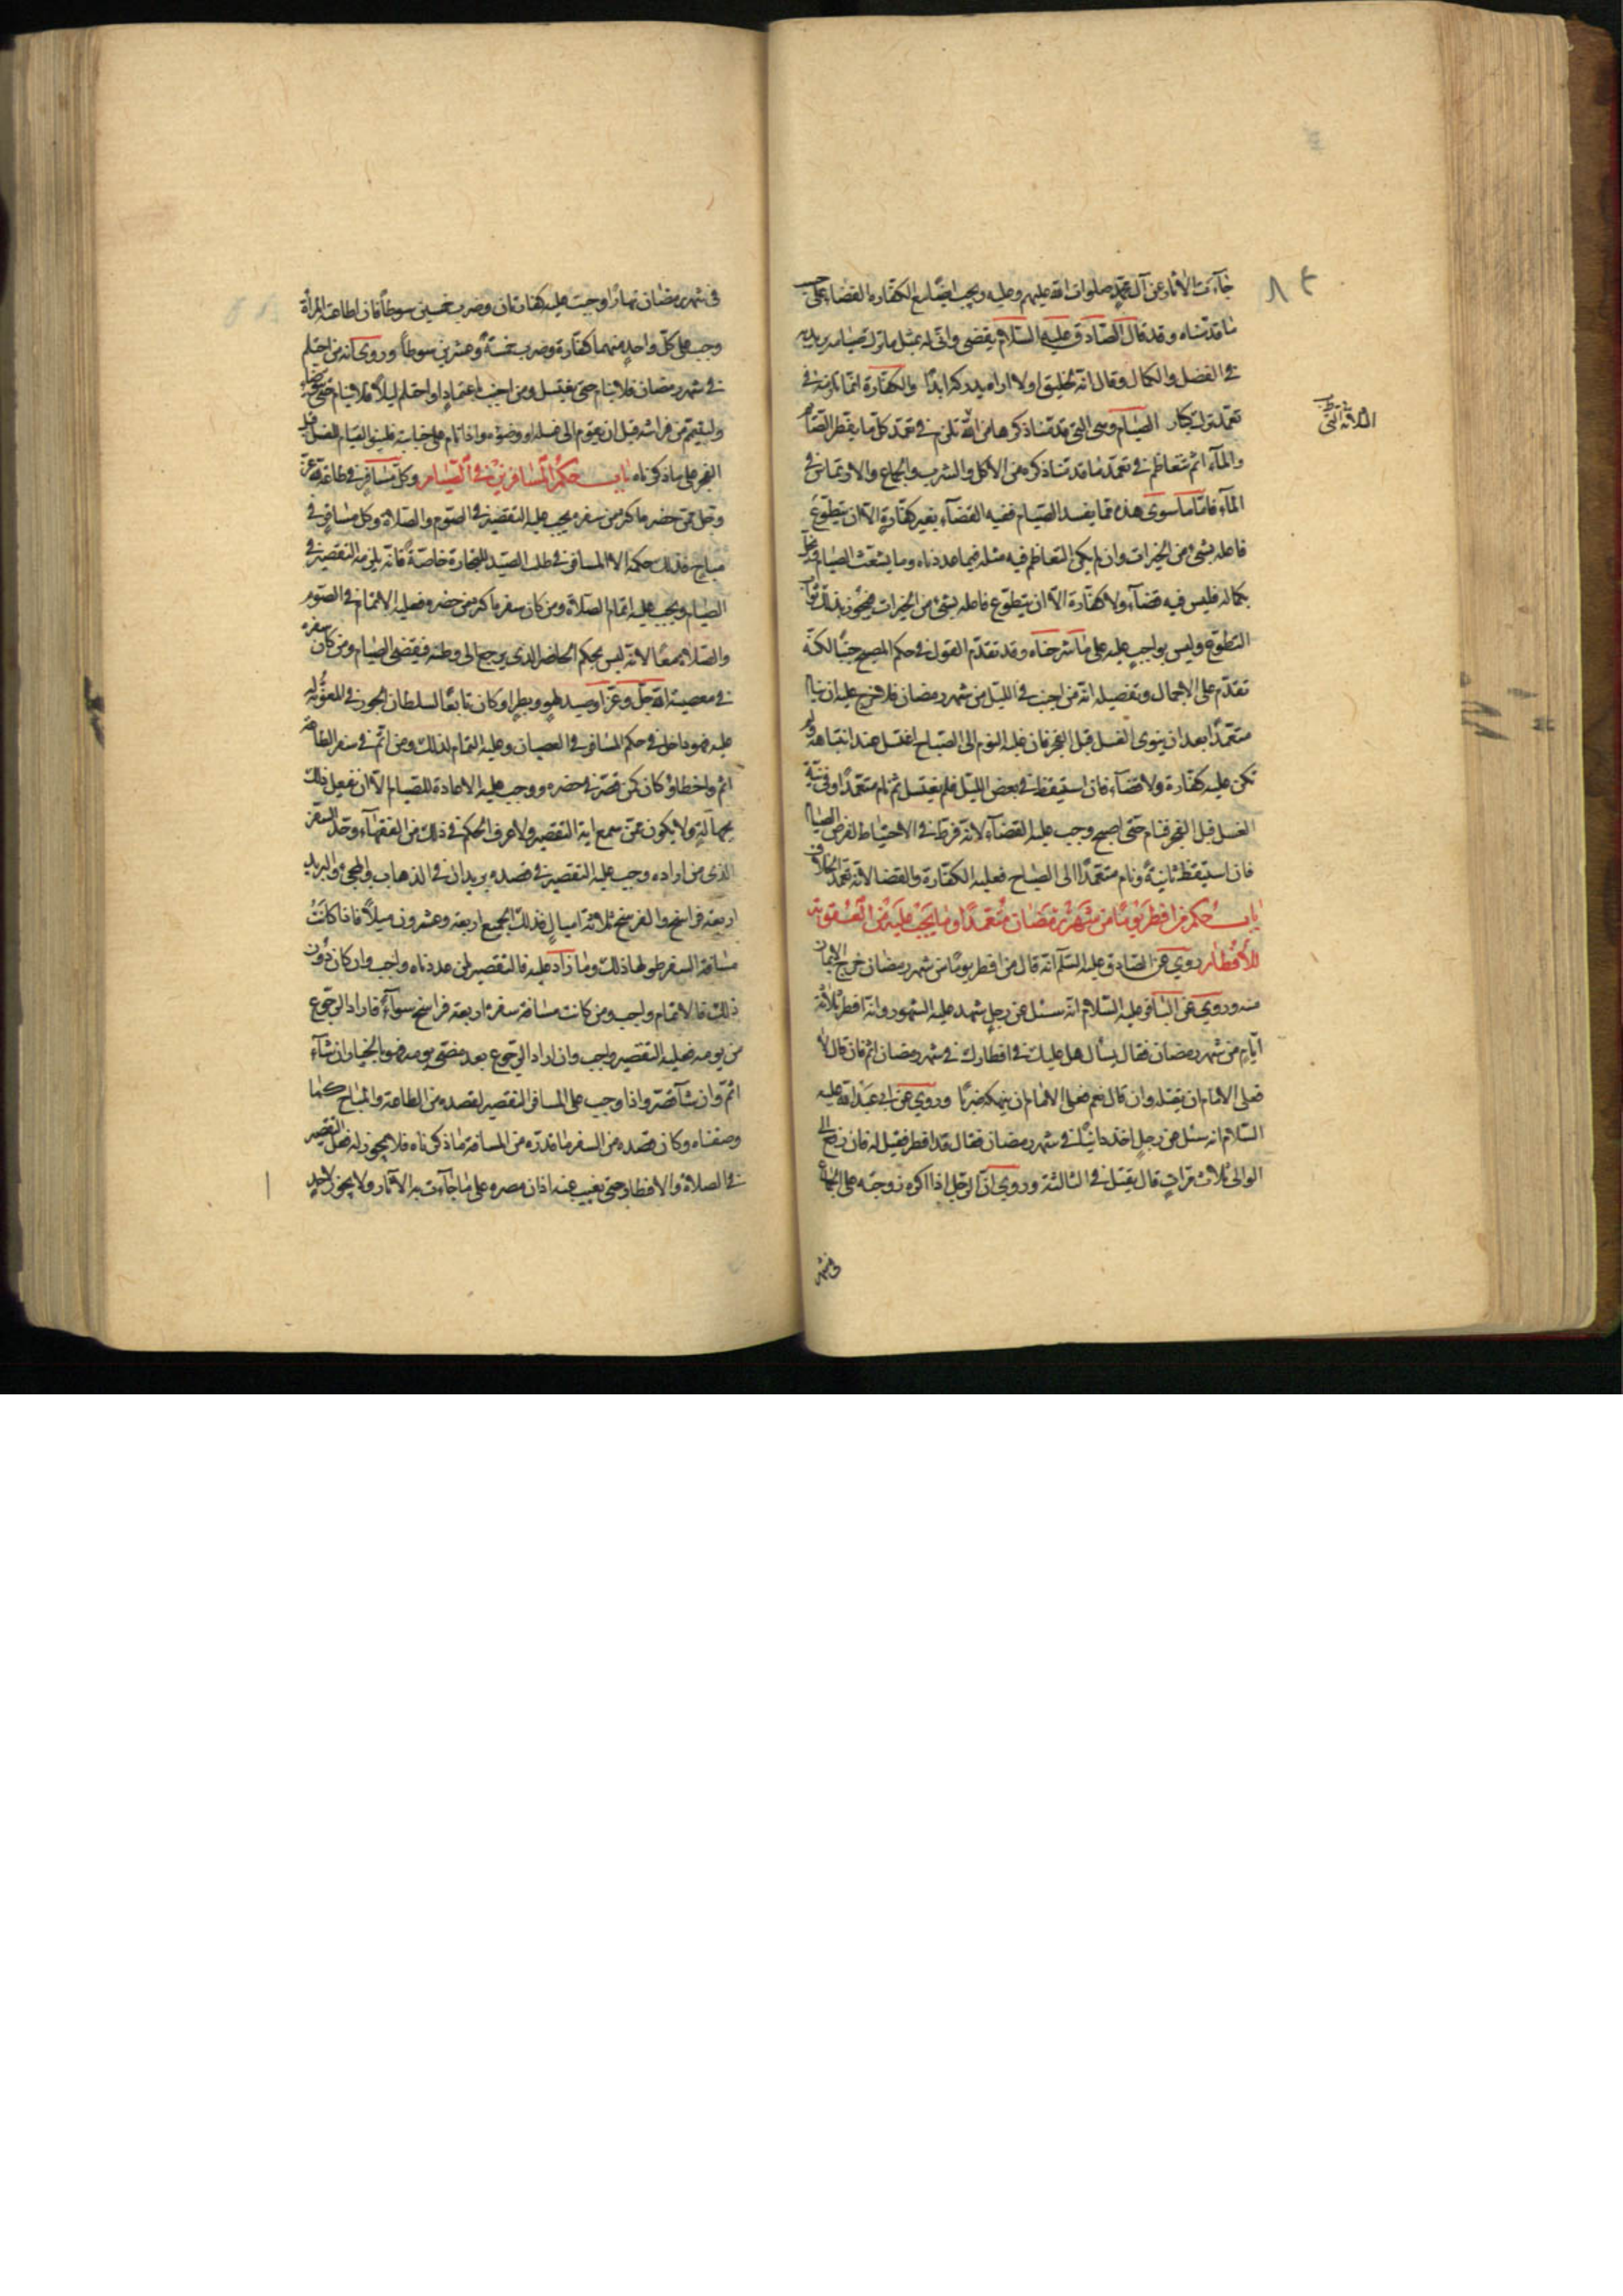 جآءت الاثار عن آل محمد صلوات الله عليهم وعليه ويجب ايضًا مع الكفارة القضاء على حسب
ما قدمناه وقد قال الصادق عليه السلام يقضي وانى له بمثل ما ترك صيامه يريد به
في الفضل والكمال وقال انه لخليق اولا اراه يدركه ابدًا والكفارة انما تلزمه في
تعمد ترك الصيام وهي التي قدمنا ذكرها من تلزم في تعمد كل ما يفطر الصائم
والمآء اثم متعاظم في تعمد ما قدمنا ذكره من الاكل والشرب والجماع والارتماس في
المآء فاما ما سوى هذه مما يفسد الصيام ففيه القضآء بغير كفارة الا ان يتطوع
فاعله بشئ من الخيرات وان لم يكن المتعاظم فيه مثله فيما عددناه وما يشعث الصيام ويخل
بكماله فليس فيه قضآء ولا كفارة الا ان يتطوع فاعله بشئ من الخيرات فيحوز بذلك ثواب
التطوع وليس بواجب عليه على ما شرحناه وقد تقدم القول في حكم المصبح جنبًا لكنه
تقدم على الاجمال وتفصيله انه من اجنب في الليل من شهر رمضان فلا حرج عليه ان ينام
متعمدًا بعد ان ينوي الغسل قبل الفجر فان غلبه النوم الى الصباح اغتسل عند انتباهه ولم
تكن عليه كفارة ولا قضآء فان استيقظ في بعض الليل فلم يغتسل ثم نام متعمدًا وفي نيته
الغسل قبل الفجر فنام حتى اصبح وجب عليه القضآء لانه فرط في الاحتياط لفرض الصيام
فان استيقظ ثانية ونام متعمدًا الى الصباح فعليه الكفارة والقضا لانه تعمد الخلاف
باب حكم من افطر يومًا من شهر رمضان متعمدًا وما يجب عليه من العقوبة
للافطار روي عن الصادق عليه السلم انه قال من افطر يومًا من شهر رمضان خرج الايمان
منه وروي عن الباقر عليه السلام انه سئل عن رجل شهد عليه الشهود وانه افطر ثلاثة
ايام من شهر رمضان فقال يسأل هل عليك في افطارك في شهر رمضان اثم فان قال لا
فعلى الامام ان يقتله وان قال نعم فعلى الامام ان ينهكه ضربًا وروي عن ابي عبد الله عليه
السلام انه سئل عن رجل اخذ زانيًا في شهر رمضان فقال قد افطر فقيل له فان رفع الى
الوالي ثلاث مرات قال يقتل في الثالثة وروي ان الرجل اذا اكره زوجته على الجماع
في شهر
في شهر رمضان نهارًا وجبت عليه كفارتان وضرب خمسين سوطًا فان اطاعته المرأة
وجب على كل واحد منهما كفارة وضرب خمسة وعشرين سوطًا وروي انه من احتلم
في شهر رمضان فلا ينام حتى يغتسل ومن اجنب باعتماد او احتلم ليلًا فلا ينام حتى
وليقم من فراشه قبل ان يقوم الى غسله او وضوءه واذا نام على جنابته فلينو القيام للغسل قبل
الفجر على ما ذكرناه باب حكم المسافرين في الصيام وكل مسافر في طاعة الله عز
وجل حضره اكثر من سفره يجب عليه التقصير في الصوم والصلاة وكل مسافر في
مباح فذلك حكمه الا المسافر في طلب الصيد للتجارة خاصة فانه يلزمه التقصير في
الصيام ويجب عليه اتمام الصلاة ومن كان سفره اكثر من حضره فعليه الاتمام في الصوم
والصلاة معًا لانه ليس بحكم الحاضر الذي يرجع الى وطنه فيقضي الصيام ومن كان سفره
في معصية الله جل وعز او صيد لهو وبطر او كان تابعًا لسلطان الجور في المعونة له
عليه فهو داخل في حكم المسافر في العصيان وعليه التمام لذلك ومن اتم في سفر الطاعة
اثم واخطأ وكان كمن قصر في حضره ووجب عليه الاعادة للصيام الا ان يفعل ذلك
بجهالة ولا يكون ممن سمع اية التقصير ولا عرف الحكم في ذلك من الفقهآء وحد السفر
الذي من اراده وجب عليه التقصير في قصده بريدان في الذهاب والمجئ والبريد
اربعة فراسخ والفرسخ ثلاثة اميال فذلك الجميع اربعة وعشرون ميلًا فاذا كانت
مسافة السفر طولها ذلك وما زاد عليه فالتقصير لمن عددناه واجب وان كان دون
ذلك فالاتمام واجب ومن كانت مسافة سفره اربعة فراسخ سوآء فاراد الرجوع
من يومه فعليه التقصير واجب وان اراد الرجوع بعد مضى يومه فهو بالخيار ان شآء
اتم وان شآء قصر واذا وجب على المسافر التقصير لقصده من الطاعة والمباح كما
وصفناه وكان قصده من السفر ما قدره من المسافة ما ذكرناه فلا يجوز له فعل التقصير
في الصلاة والافطار حتى يغيب عنه اذان مصره على ما جاءت به الآثار ولا يجوز لاحد